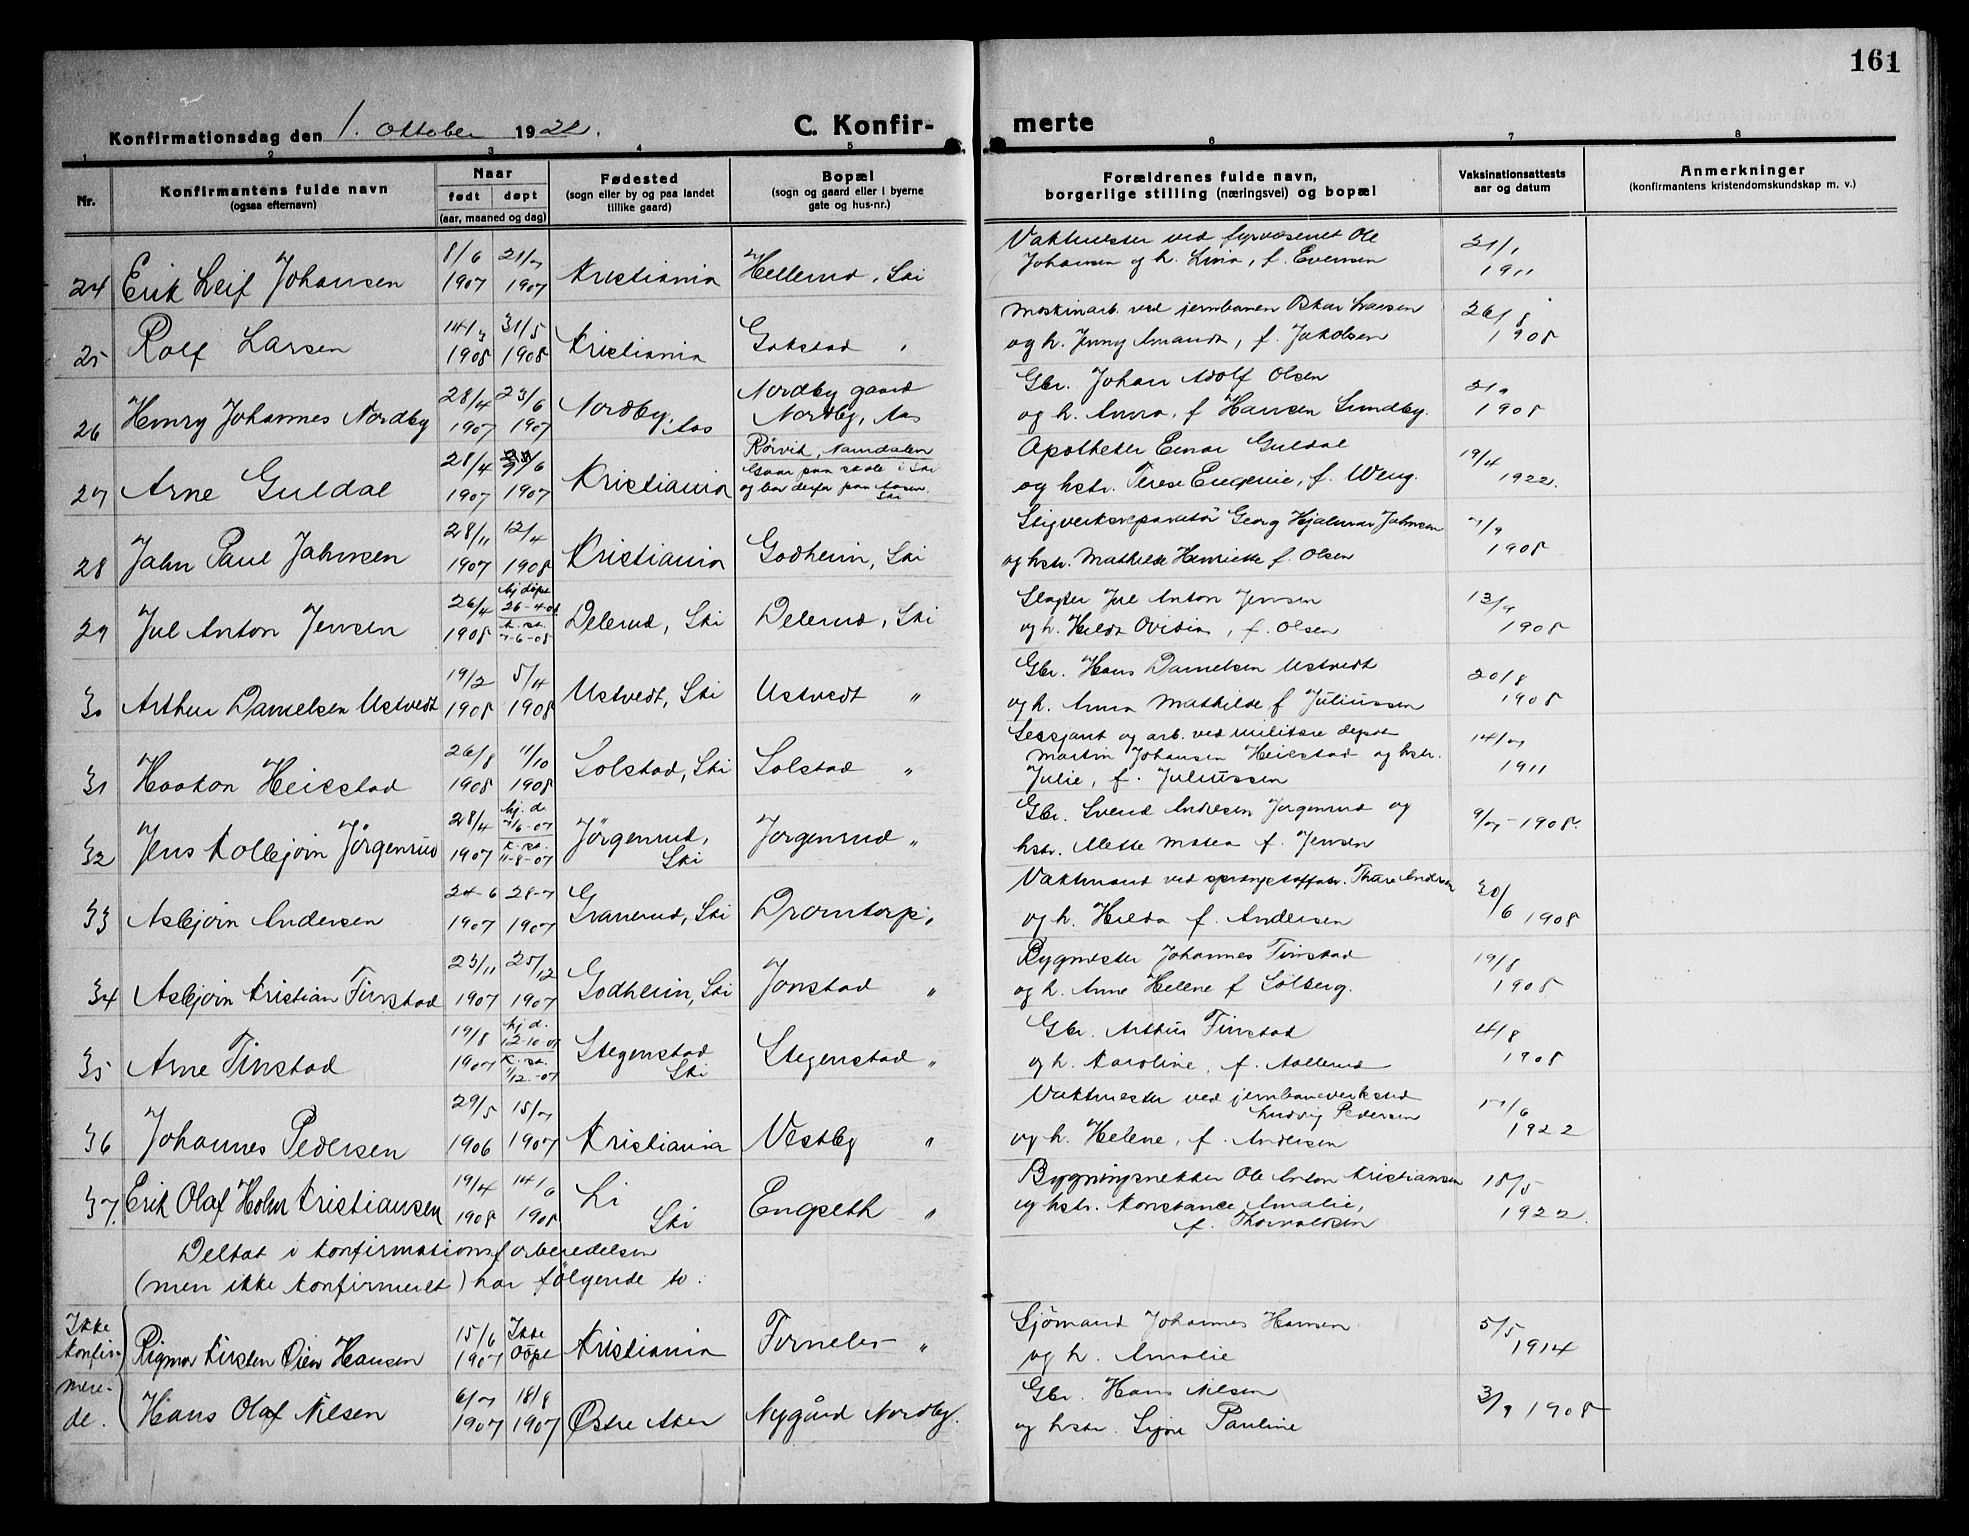 161
Konfirmationsdag den 1. Oktober 1922.
C. Konfir-
merte
1 2 3 4 5 6 7 8
Nr.
Konfirmantens fulde navn
(ogsaa efternavn)
Naar
født døpt
(aar, maaned og dag)
Fødested
(sogn eller by og paa landet
tillike gaard)
Bopæl
(sogn og gaard eller i byerne
gate og hus-nr.)
Forældrenes fulde navn,
borgerlige stilling (næringsvei) og bopæl
Vaksinationsattests
aar og datum
Anmerkninger
(konfirmantens kristendomskundskap m. v.)
24 Erik Leif Johansen 8/6 1907 21/7 1907 Kristiania Hellerud, Ski
Vaktmester ved fyrvæsenet Ole
Johansen og h. Lina, f. Evensen
21/1 1911
25 Rolf Larsen 14/3 1908 31/5 1908 Kristiania Gakstad "
Maskinarb. ved jernbanen Oskar Larsen
og h. Jenny Amanda, f. Jakobsen
26/8 1908
26 Henry Johannes Nordby 28/4 1907 23/6 1907 Nordby, Aas Nordby gaard
Nordby, Aas
Gbr. Johan Adolf Olsen
og h. Anna, f. Hansen Sundby.
1908
27 Arne Guldal 28/4 1907 /6 1907 Kristiania Rørvik, Namdalen
Gaar paa skole i Ski
og bor derfor paa Aasen, Ski
Apotheker Einar Guldal
og hstr. Terese Eugenie, f. Weng.
19/4 1922.
28 Jahn Paul Jahnsen 28/11 1907 12/4 1908 Kristiania Godheim, Ski
Stigverksreparatør Georg Hjalmar Jahnsen
og hstr. Mathilde Henriette f. Olsen
7/9 1908
29 Jul Anton Jensen 26/4 1908 hj døpt 26-4-08 k. st. 7-6-08 Delerud, Ski Delerud, Ski
Slagter Jul Anton Jensen
og h. Hilda Ovidia, f. Olsen
13/9 1908
30 Arthur Danielsen Ustvedt 19/2 1908 5/4 1908 Ustvedt, Ski Ustvedt "
Gbr. Hans Danielsen Ustvedt
og h. Anna Mathilde f Juliussen
20/8 1908
31 Haakon Heiestad 26/8 1908 11/10 1908 Solstad, Ski Solstad "
Sersjant og arb. ved militære depot
Martin Johansen Heiestad og hstr.
Julie, f. Juliussen
14/7 1911
32 Jens Kolbjørn Jørgenrud 28/4 1907 hj. d. 7/6-07 k. st. 11-8-07 Jørgenrud, Ski Jørgenrud "
Gbr. Svend Andresen Jørgenrud og
hstr. Mette Matea f. Jensen
9/7-1908.
33 Asbjørn Andersen 24-6 1907 28-7 1907 Granerud, Ski Dromtorp "
Vaktmand ved sprængstoffabr. Thure Andersen
og h. Hilda f. Andersen
30/6 1908
34 Asbjørn Kristian Finstad 23/11 1907 25/12 1907 Godheim, Ski Jonstad "
Bygmester Johannes Finstad
og h. Anne Helene f Solberg.
19/8 1908
35 Arne Finstad 19/8 1907 hj d. 12-10-07 k. st. 1/12.-07 Stegenstad Ski Stegenstad "
Gbr. Arthur Finstad
og h. Karoline, f. Aallerud
4/8 1908
36 Johannes Pedersen 29/5 1906 15/7 1907 Kristiania Vestby "
Vaktmester ved jernbaneverksted
Ludvig Pedersen
og h. Helene, f. Andersen
17/6 1922
37. Erik Olaf Holm Kristiansen 19/4 1908 14/6 1908 Li Ski Engseth "
Bygningsnekker Ole Anton Kristiansen
og hstr. Konstance Amalie,
f. Thorvaldsen
18/5 1922.
Deltat i konfirmationsforberedelsen
(men ikke konfirmert) har følgende to:
Ikke konfir-
mere-
de.
Rigmor Kirsten Oien Hansen 15/6 1907 Ikke døpt Kristiania Tornebo "
Sjømand Johannes Hansen
og h. Amalie
5/5 1914
Hans Olaf Nilsen 6/7 1907 18/8 1907 Østre Aker Nygård Nordby.
Gbr. Hans Nilsen
og hstr. Signe Pauline
3/9 1908